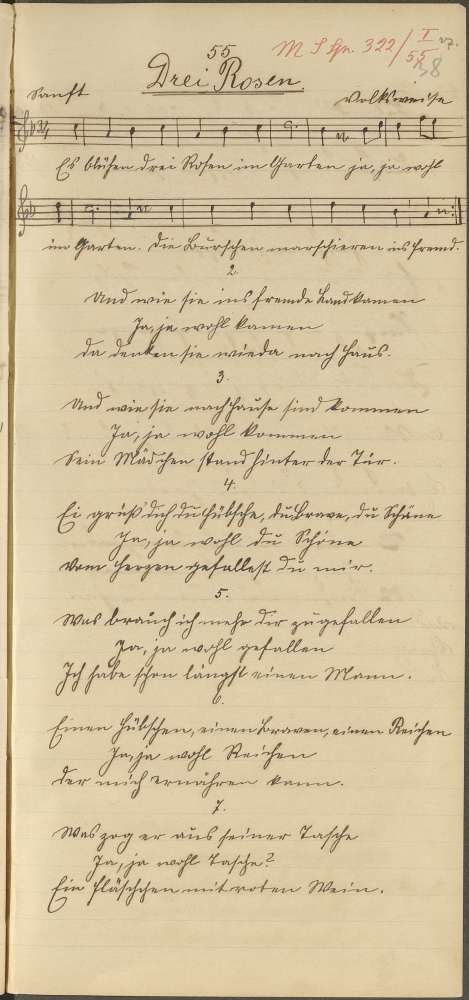 55
M S Gr. 322/ I 55
38
Drei Rosen.
Sanft
Volksweise
Es blühen drei Rosen im Garten ja, ja wohl
im Garten. Die Burschen marschieren ins fremd.
2.
Und wie sie ins fremde Land kamen
Ja, ja wohl kamen
Da denken sie wieda nach Haus.
3.
Und wie sie nach Hause sind kommen
Ja, ja wohl kommen
Sein Mädchen stand hinter der Tür.
4.
Ei grüß' dich du hübsche, du brave, du Schöne
Ja, ja wohl du Schöne
Vom Herzen gefallest du mir.
5.
Was brauch ich mehr dir zu gefallen
Ja, ja wohl gefallen
Ich habe schon längst einen Mann.
6.
Einen hübschen, einen braven, einen Reichen
Ja, ja wohl Reichen
Der mich ernähren kann.
7.
Was zog er aus seiner Tasche
Ja, ja wohl Tasche?
Ein Fläschchen mit roten Wein.